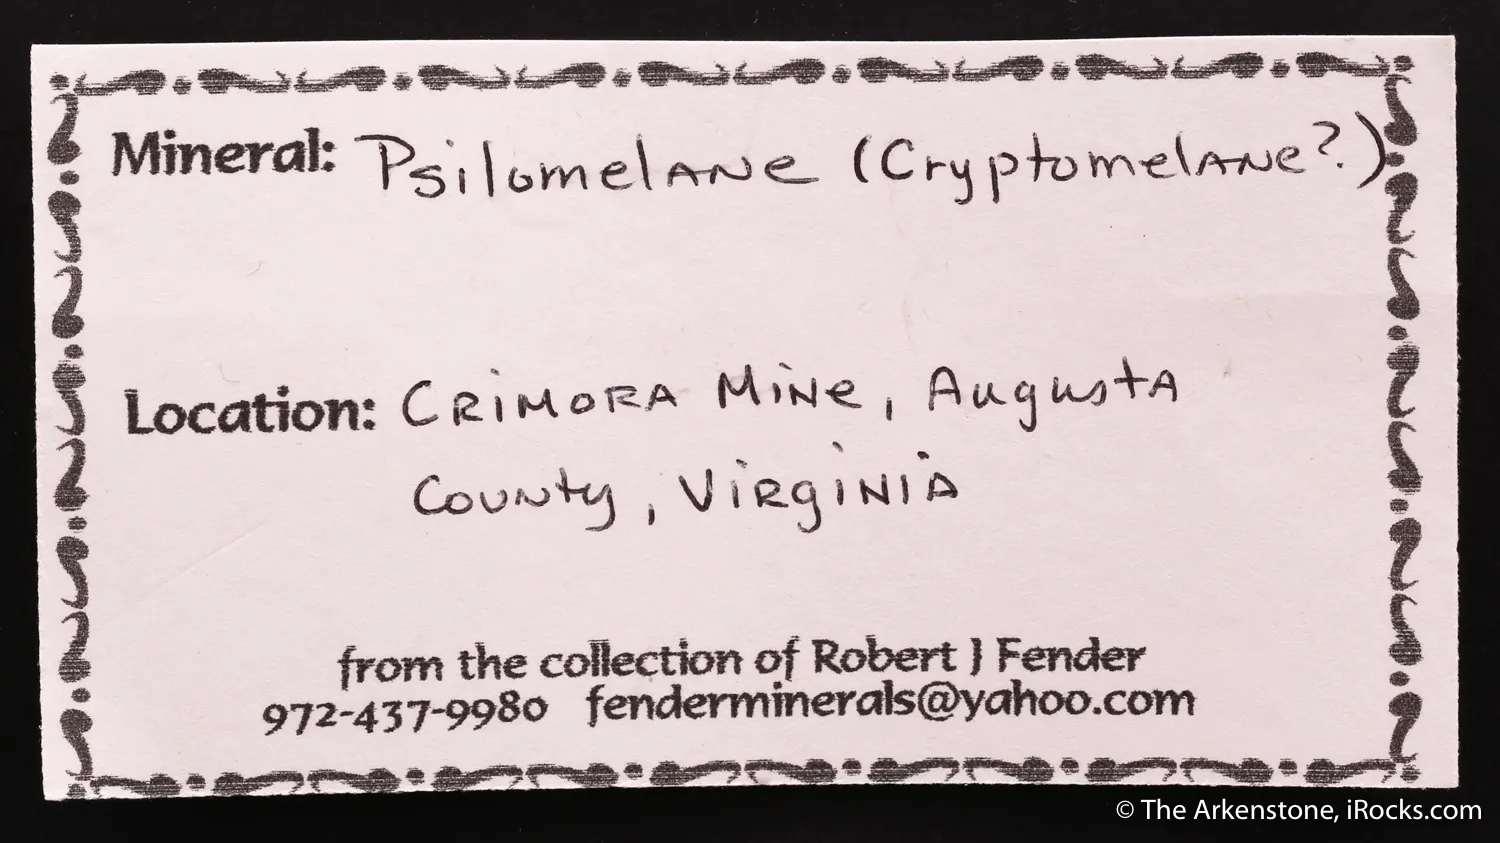 Mineral: Psilomelane (Cryptomelane?)
Location: Crimora Mine, Augusta
County, Virginia
from the collection of Robert J Fender
972-437-9980 fenderminerals@yahoo.com
© The Arkenstone, iRocks.com